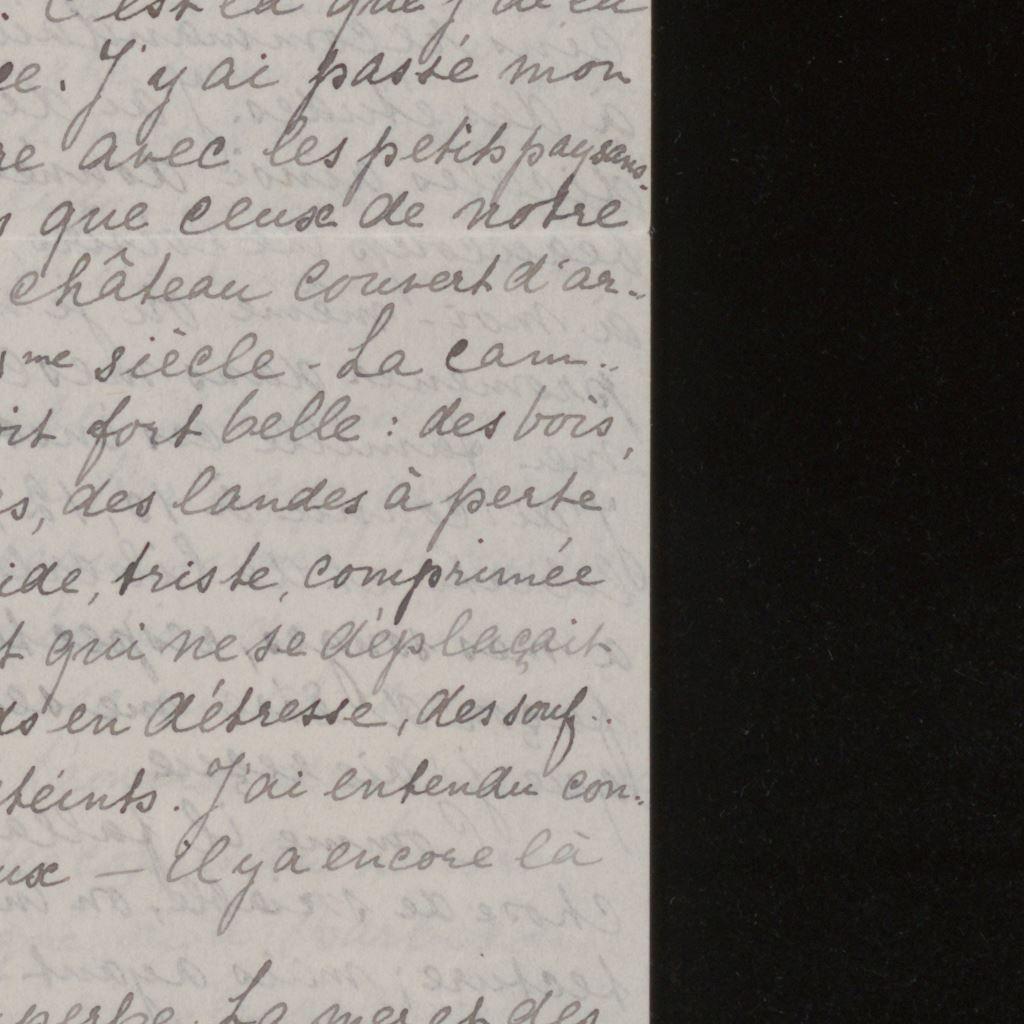 . C'est là que j'ai eu
ce. J'y ai passé mon
re avec les petits paysans.
que ceux de notre
château couvert d'ar-
me siècle - La cam-
oit fort belle : des bois,
s, des landes à perte
ide, triste, comprimée
t qui ne se déplaçait
ds en détresse, des souf-
téints. J'ai entendu con-
ux — il y a encore là
perbe. La mer et des